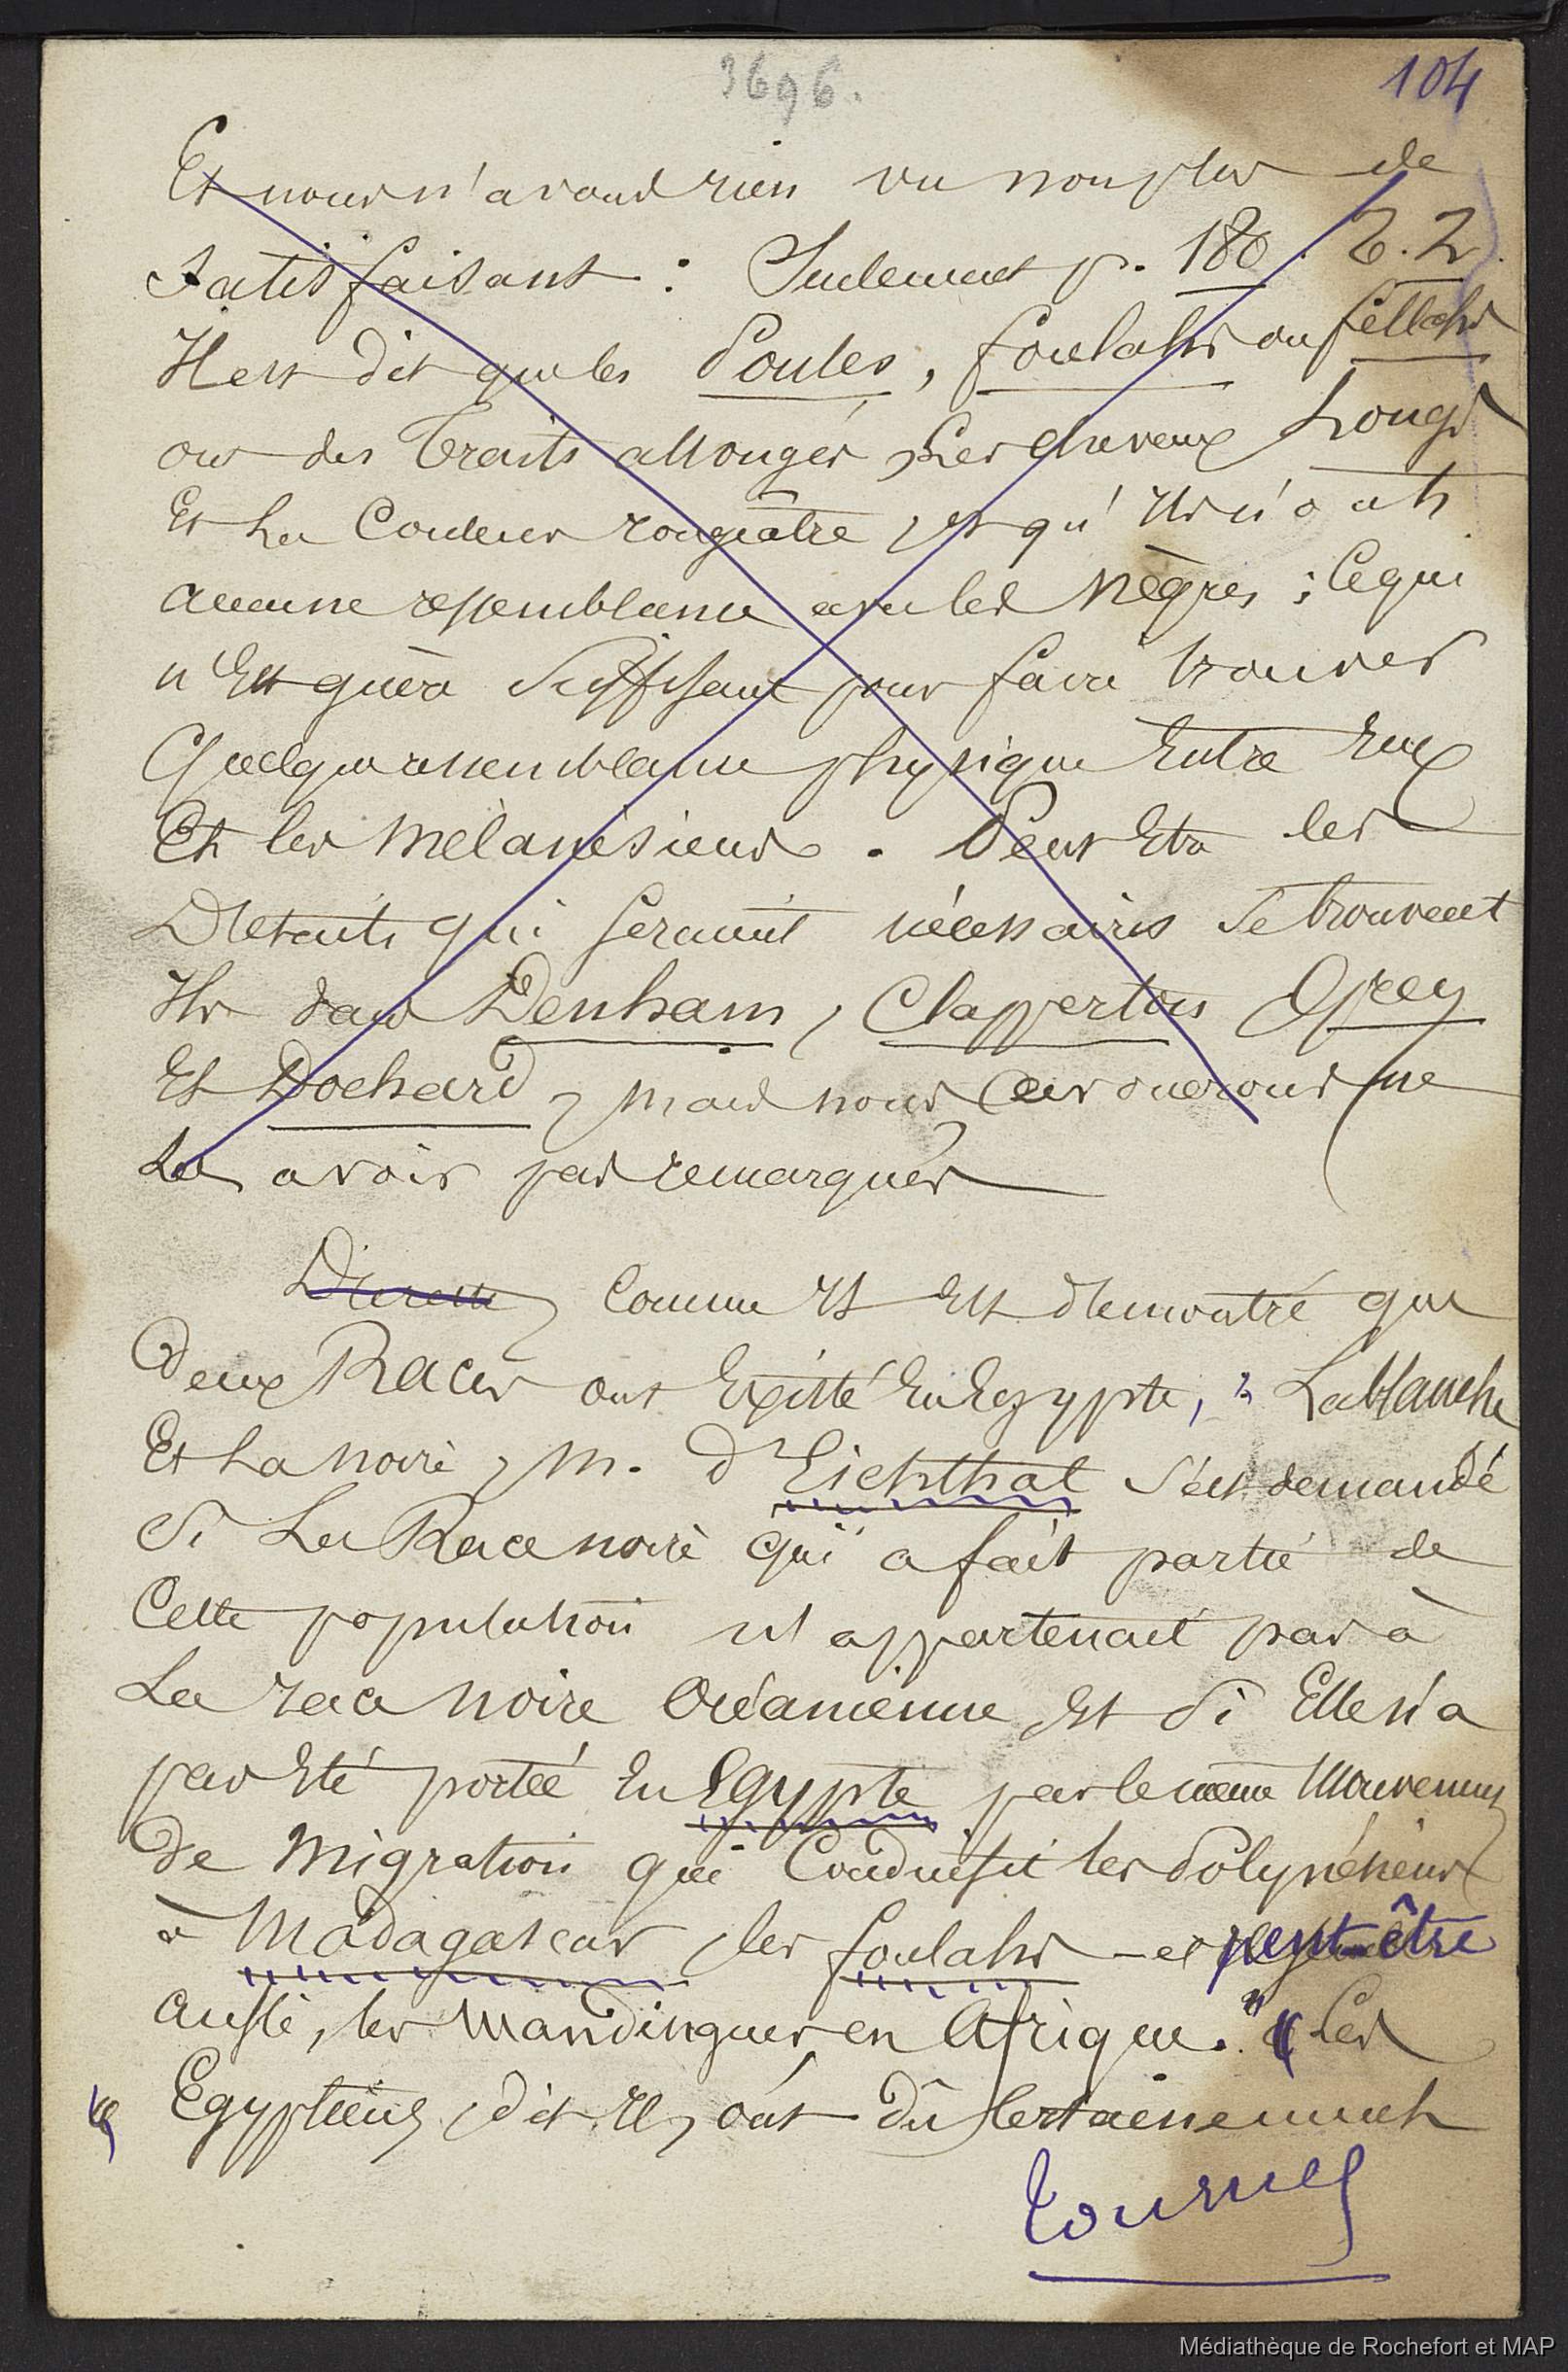 3696.
104
Et nous n'avons rien vu non plus de
Satisfaisant : Seulement p. 180. T. 2.
Il est dit que les Poules, foulahs ou fellahs
ont des traits allongés, les cheveux longs
Et la Couleur rougeâtre, et qu'ils n'ont
aucune ressemblance avec les Nègres ; Ce qui
n'Est guère suffisant pour faire trouver
Quelque ressemblance physique Entre Eux
Et les Mélanésiens. Peut Etre les
Détails qui seraient nécessaires se trouvent
Ils dans Denham, Clapperton Grey
Et Dochard, mais nous avouerons ne
les avoir pas remarqués
Comme Il Est démontré que
deux Races ont Existé En Egypte, La blanche
Et La noire, M. d'Eichthal s'est demandé
Si La Race noire qui a fait partie de
Cette population n'appartenait pas à
La race noire Océanienne Et Si Elle n'a
pas Eté portée En Egypte par le même Mouvement
de Migration qui Conduisit les Polynésiens
à Madagascar, les foulahs et peut-être
aussi, les Mandingues, en Afrique. " « Les
« Egyptiens, dit-Il, ont dû certainement
tournez
Médiathèque de Rochefort et MAP